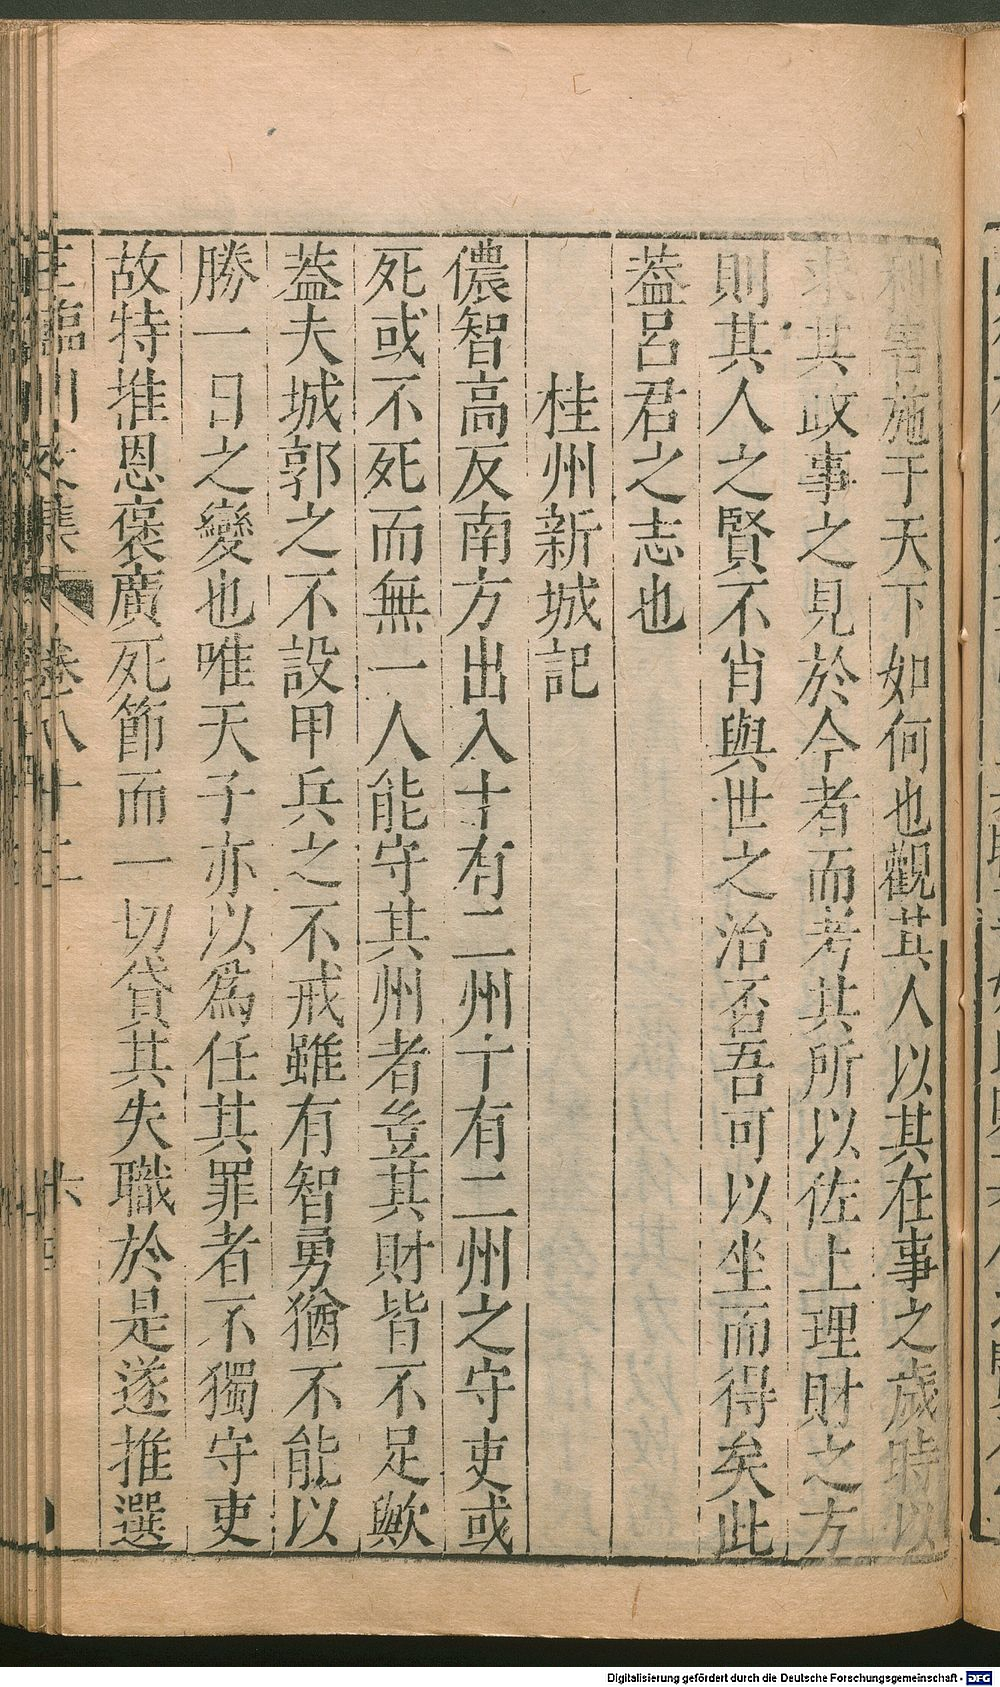 利害施于天下如何也觀其人以其在事之歲時以
求其政事之見於今者而考其所以佐上理財之方
則其人之賢不肖與世之治否吾可以坐而得矣此
葢呂君之志也
桂州新城記
儂智高反南方出入十有二州十有二州之守吏或
死或不死而無一人能守其州者豈其財皆不足歟
葢夫城郭之不設甲兵之不戒雖有智勇猶不能以
勝一日之變也唯天子亦以爲任其罪者不獨守吏
故特推恩襃廣死節而一切貸其失職於是遂推選
王臨川文集 卷八十二
Digitalisierung gefördert durch die Deutsche Forschungsgemeinschaft - DFG